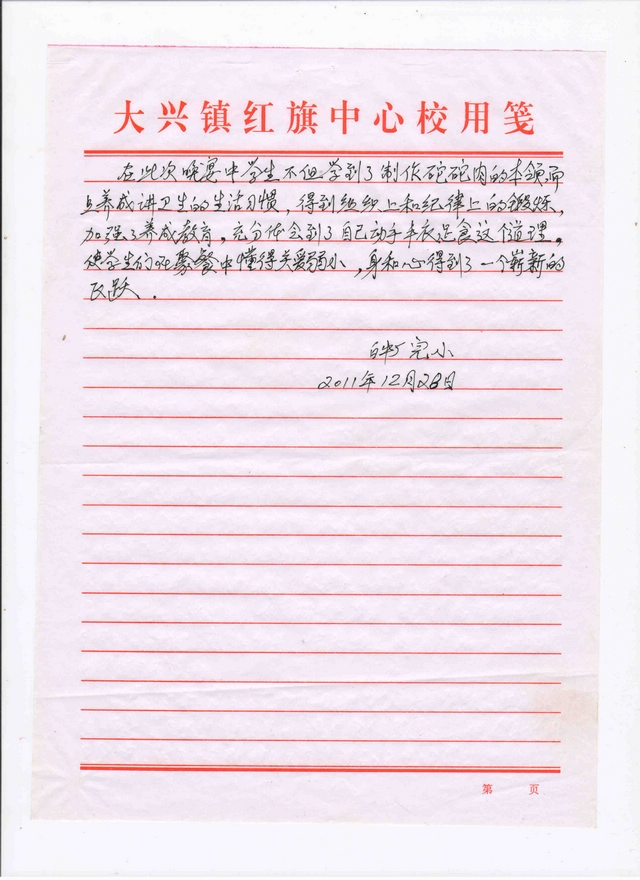 大兴镇红旗中心校用笺
在此次晚宴中学生不但学到了制作砣砣肉的本领而
且养成讲卫生的生活习惯，得到组织上和纪律上的锻炼，
加强了养成教育，充分体会到了自己动手丰衣足食这个道理。
使学生们在聚餐中懂得关爱弱小，身和心得到了一个崭新的
飞跃．
完小
2011年12月28日
第 页